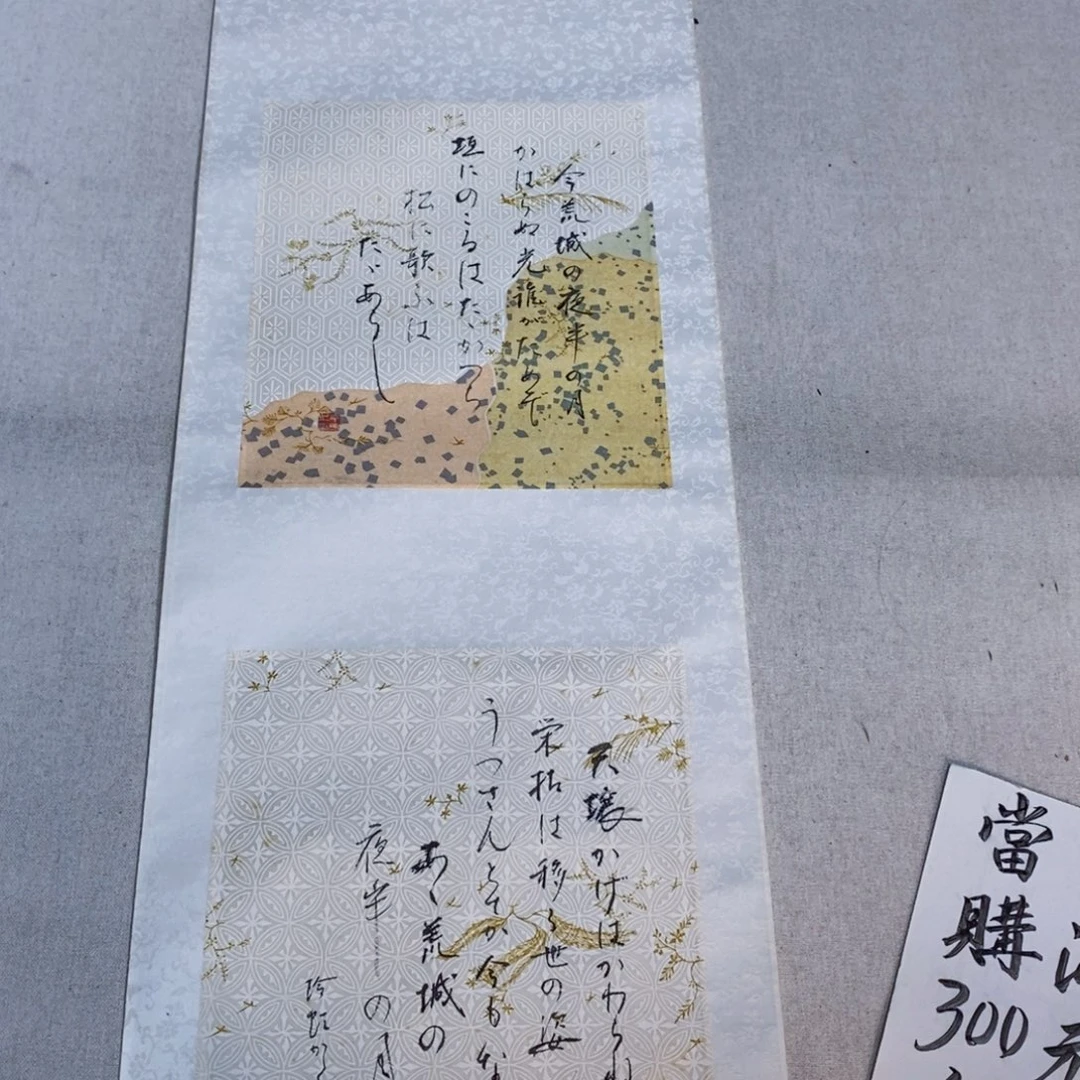 今荒城の夜半の月
かはらぬ光誰がためぞ
垣にのこるはたゞかつら
松に歌ふは
たゞあらし
天壌かげはかわら
栄枯は移る世の姿
うつさんとてか今もな
あゝ荒城の
夜半の月
當購300